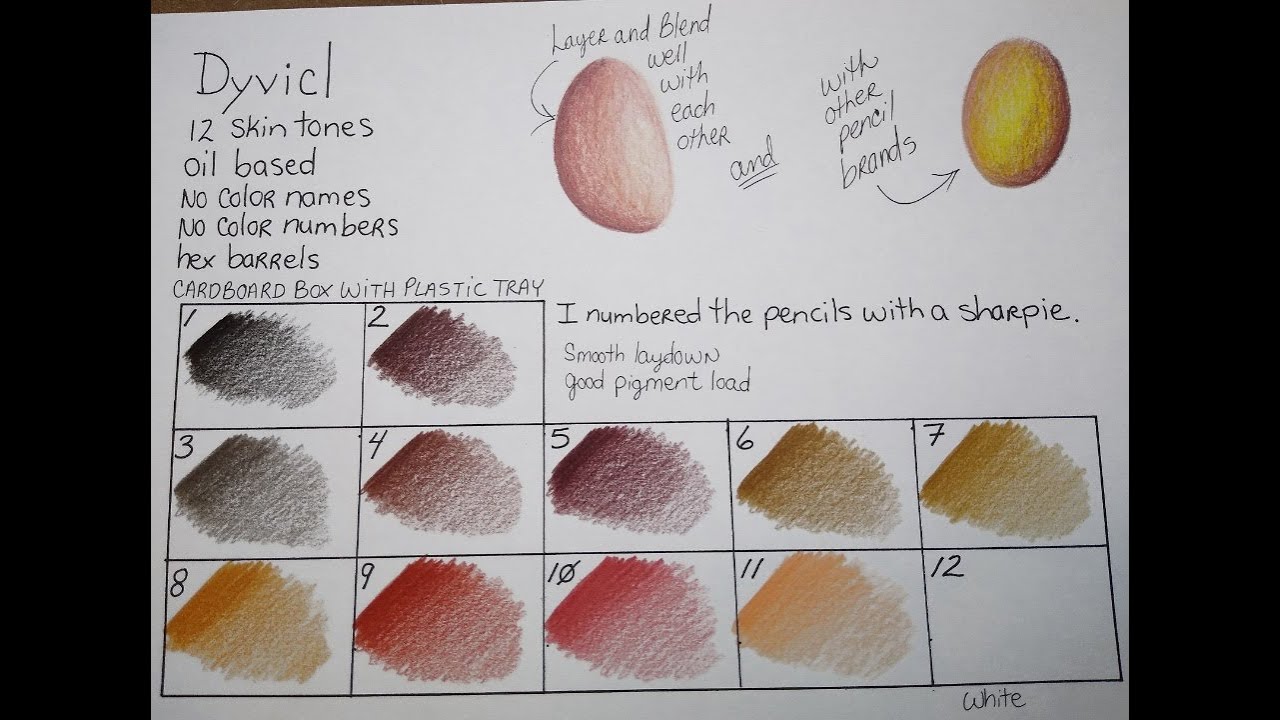 Dyvicl
12 skin tones
oil based
No color names
No color numbers
hex barrels
CARDBOARD BOX WITH PLASTIC TRAY
Layer and Blend
well
with
each
other
and
with
other
pencil
brands
I numbered the pencils with a sharpie.
Smooth laydown
good pigment load
1 2
3 4 5 6 7
8 9 10 11 12
White